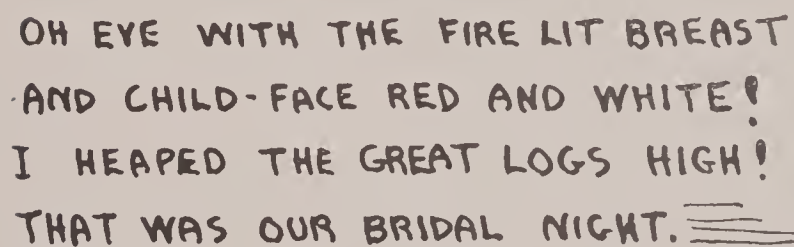 OH EVE WITH THE FIRE LIT BREAST
AND CHILD-FACE RED AND WHITE!
I HEAPED THE GREAT LOGS HIGH!
THAT WAS OUR BRIDAL NIGHT.